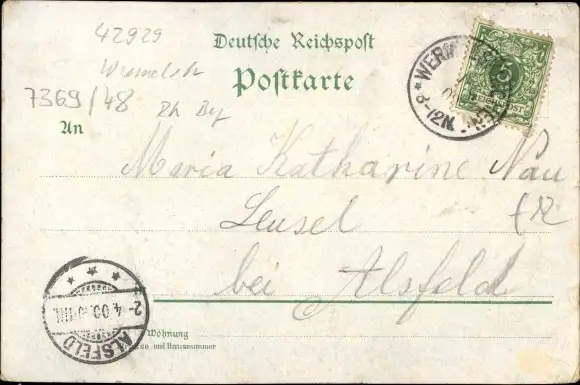 42929
Deutsche Reichspost
Postkarte
7369/48
An
Maria Katharine Nau
Leusel
bei Alsfeld
WERM
8-12N.
5
REICHSPOST
2.4.00.
ALSFELD
Wohnung
und Hausnummer